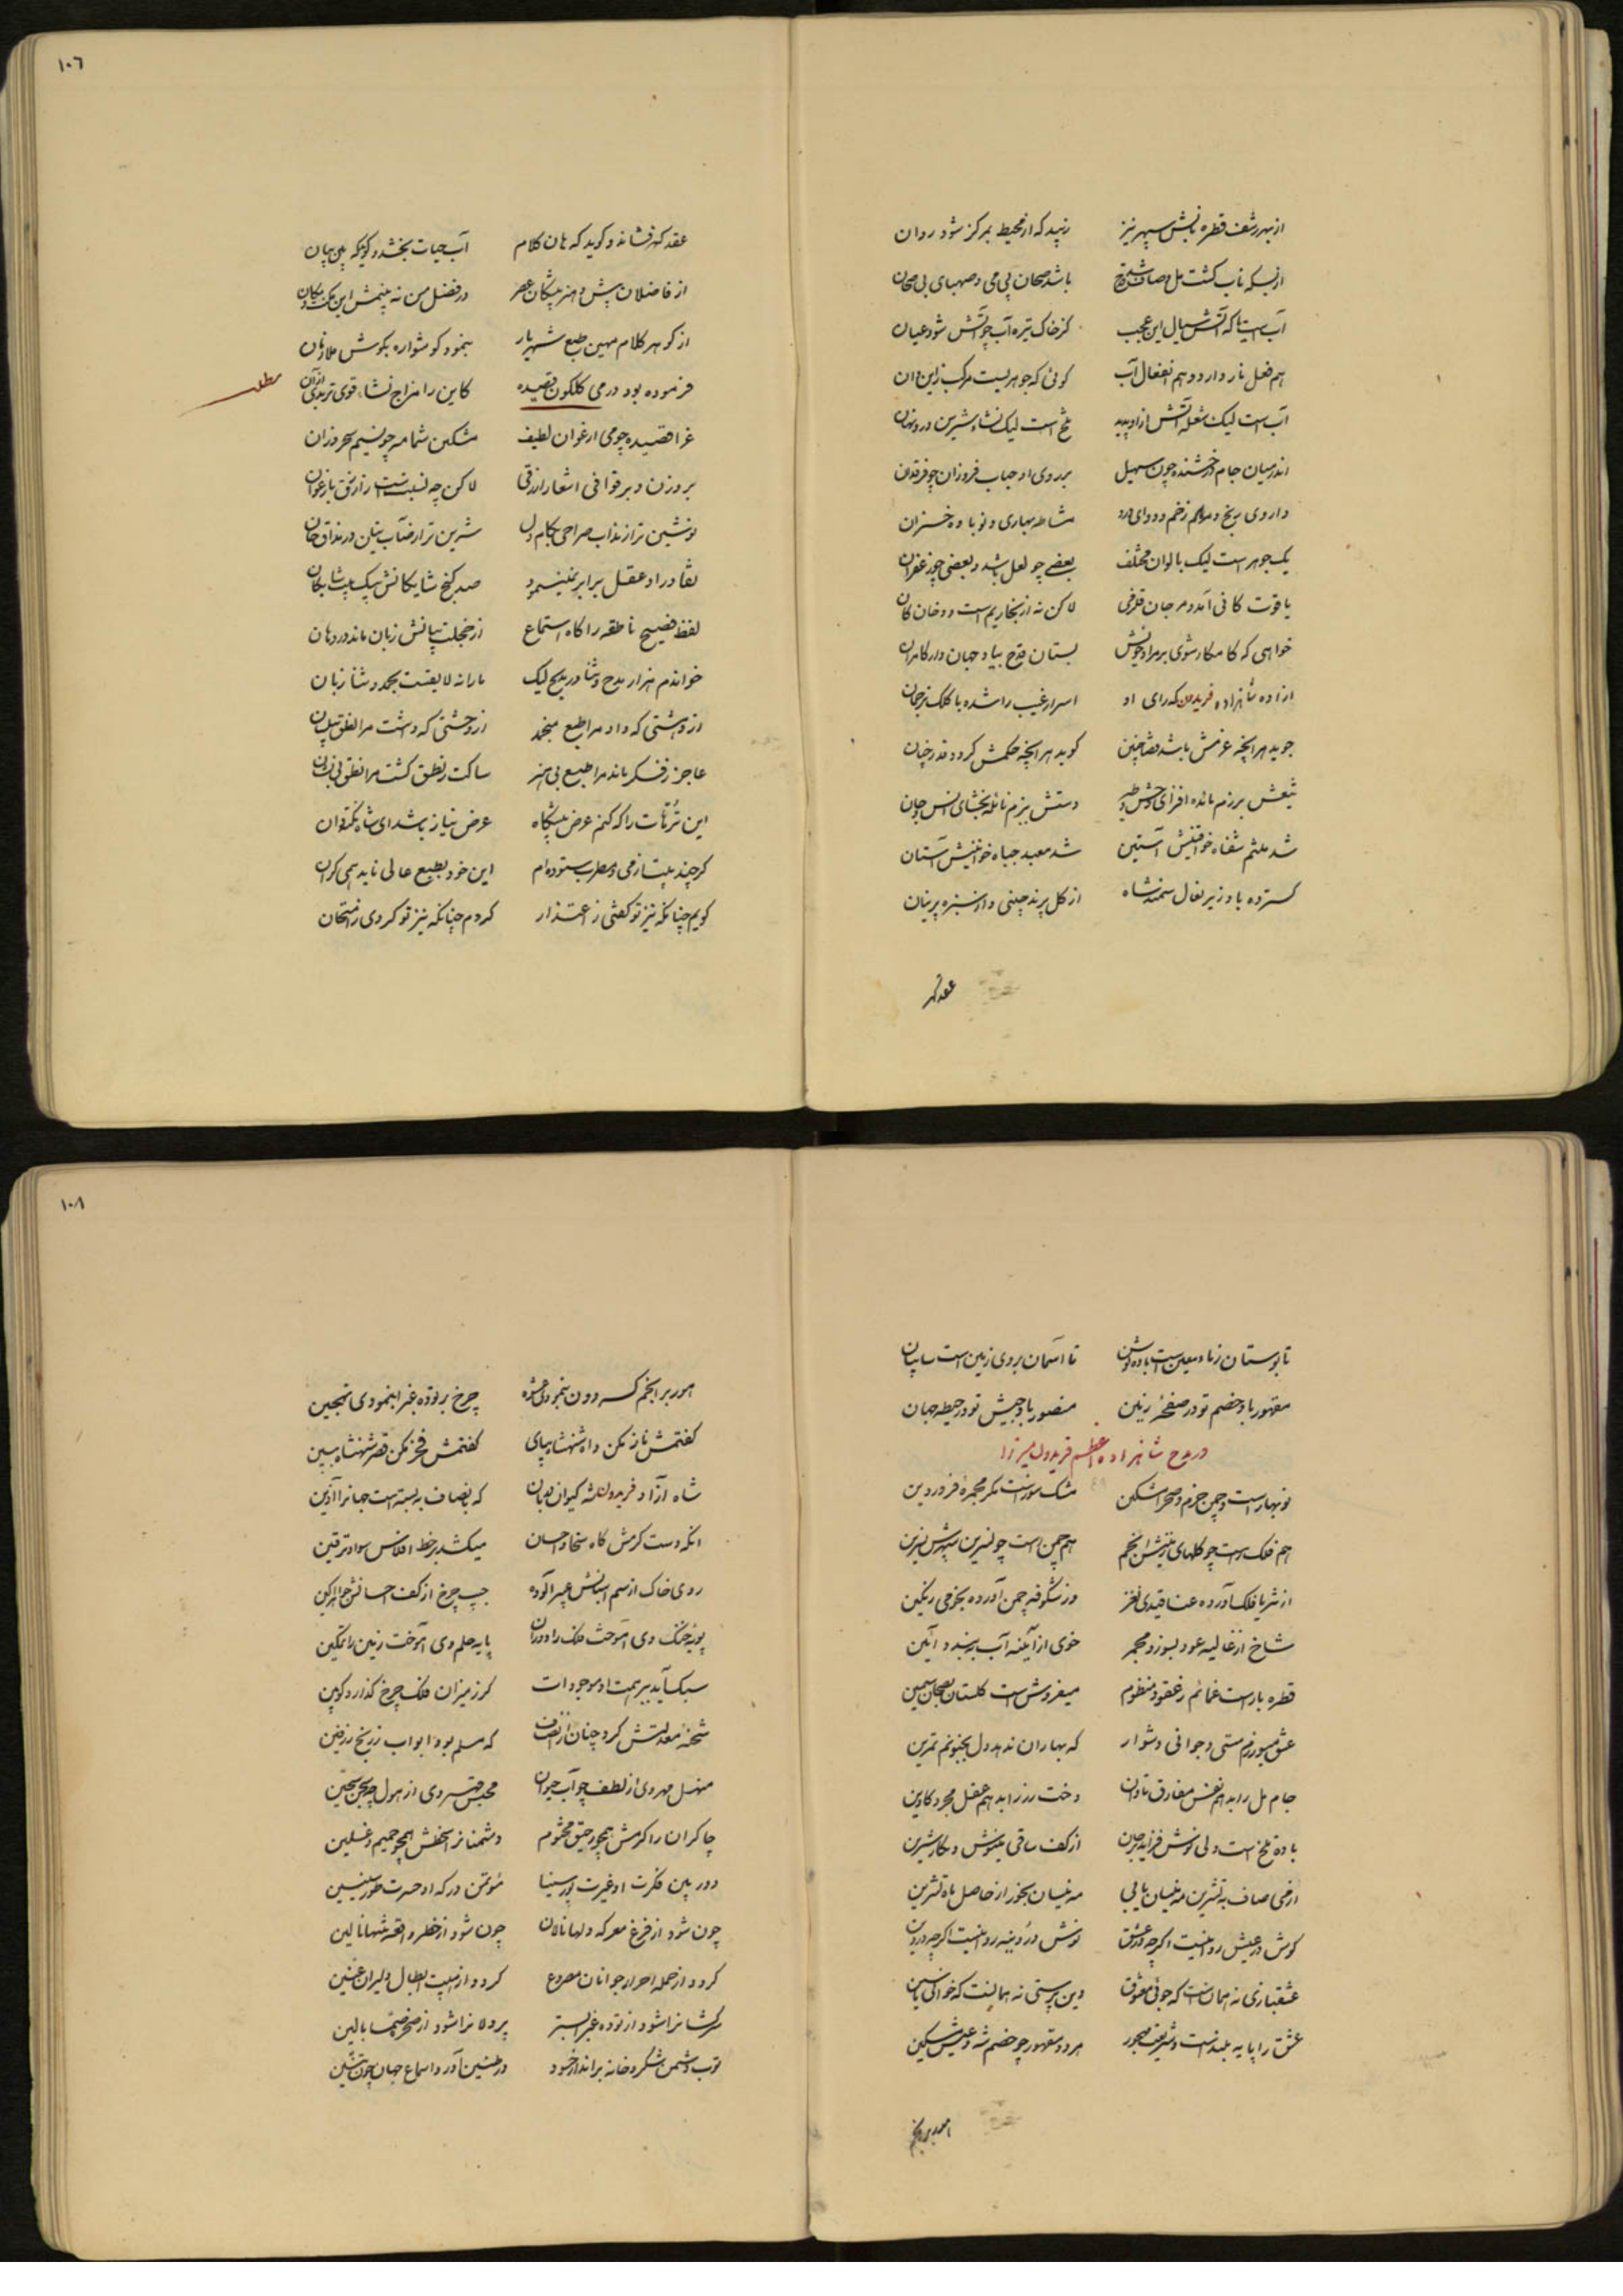 از بهر رشف قطره نابش سپهر نیز زیبد که از محیط بمرکز شود روان
از بسکه ناب گشت مل و صاف شد قدح باشد صحان پی می و صهبای بی صحان
آب است یا که آتش سیال این عجب کز خاک تیره آب چو آتش شود عیان
هم فعل نار دارد و هم انفعال آب گوئی که جوهریست مرکب ازین و ان
آب است لیک شعله آتش از او پدید تلخ است لیک نشاء شیرین در و نهان
اندر میان جام درخشنده چون سهیل بر روی او حباب فروزان چو فرقدان
داروی رنج و مرهم زخم و دوای درد مشاطه بهاری و نوباوه خزان
یک جوهر است لیک بالوان مختلف بعضی چو لعل باشد و بعضی چو زعفران
یاقوت کانی آمد و مرجان قلزمی لاکن نه از بخار یم است و دخان کان
خواهی که کامکار شوی بر مراد خویش بستان قدح بیاد جهان دار کامران
ازاده شاهزاده فریدون که رای او اسرار غیب را شده با کلک ترجمان
جوید هر انچه عزمش باشد قضا چنین گوید هر انچه حکمش گردد قدر چنان
تیغش برزم مائده افزای وحش و طیر دستش ببزم نائله بخشای انس و جان
شد ملثم شفاه خواقینش آستین شد معبد جباه خوانینش آستان
گسترده باد زیر نعال سمند شاه از گل پرند چینی و از سبزه پرنیان
عقد گهر
۱۰۶
عقد گهر فشاند و گوید که هان کلام آب حیات بخشد و گوید که هین بیان
از فاضلان پیش و هنر پیشگان عصر در فضل من نه بینمش این یک
از گوهر کلام مهین طبع شهریار بنمود گوشواره بگوش ملازمان
فرموده بود در می گلگون قصیده کاین را مزاج نشاء قوی تر بدی از آن
مطلب
غرا قصیده چو می ارغوان لطیف مشکین شمامه چو نسیم سحر وزان
بر وزن و بر قوافی اشعار ازرقی لاکن چه نسبت است زازرق بارغوان
نوشین تر از مذاب صراحی بکام دل شیرین تر از رضاب بتان در مذاق جان
نقاد راد عقل برابر نمینمود صد گنج شایگانش بیک بیت شایگان
لفظ فصیح ناطقه را گاه استماع از خجلت بیانش زبان ماند در دهان
خواندم هزار مدح و ثنا در مدیح لیک یارا نه لایقت بحمد و ثنا زبان
از دهشتی که داد مرا طبع منجمد از وحشتی که داشت مرا نطق
عاجز ز فکر ماند مرا طبع بی هنر ساکت ز نطق گشت مرا نطق بی زبان
این ترهات را که کنم عرض پیشگاه عرض نیاز باشد ای شاه نکته دان
گر چند پیشتر ز می و مطرب ستوده ام این خود بطبع عالی ناید همی گران
گویم چنانکه نیز تو گفتی ز اعتذار کردم چنانکه نیز تو کردی ز امتحان
تا بوستان زیاد معین است باده نوش تا آسمان بروی زمین است سایبان
مقهور باد خصم تو در صفحهٔ زمین منصور باد جیش تو در حیطه جهان
در مدح شاهزاده اعظم فریدون میرزا
نوبهار است و چمن خرم و صحرا مشکین مشک سوز است مگر مجمرهٔ فروردین
هم فلک است چو گلهای زمینش انجم هم چمن است چو نسرین سپهرش نسرین
از ثریا فلک آورده عناقیدی نغز وز شکوفه چمن آورده نجومی رنگین
شاخ از غالیه عود بسوزد مجمر خوی از آینه آب ببندد آئین
قطره بار است غمائم ز عقود منظوم میفروش است گلستان بصحان سیمین
عشق میورزم مستی و جوانی دشوار که بهاران ندهد دل بجنونم تمرین
جام مل را بده هم نفس مفارق تاوان دخت رز را بده هم عقل مجرد کابین
باده تلخ است ولی نوش فزاید بر جان از کف ساقی مینوش و نگار شیرین
از می صاف به تشرین مه نیسان یابی مه نیسان بخور از حاصل ماه تشرین
گوش در عیش روا نیست اگر چه در عشق نوش در روزه روا نیست اگر چه در دین
عشقبازی نه همان است که جوئی معشوق دین پرستی نه همانست که خوانی یاسین
عشق را پایه بلند است و شریعت مهجور هر دو مقهور چو خصم شه و عیش مسکین
هور بر انجم
۱۰۸
هور بر انجم گردون بنمودی عشوه چرخ بر توده غبرا بنمودی تهجین
گفتمش ناز مکن داد شهنشاه بپای گفتمش فخر مکن قصر شهنشاه ببین
شاه آزاد فریدون شه کیوان دربان که بانصاف به بسته است جهانرا آذین
انکه دست کرمش گاه سخا و احسان میکشد بر خط افلاس سواد ترقین
روی خاک از سم اسبانش عبیر آلوده جیب چرخ از کف احسانش جواهر اگین
پویه خنگ وی آموخت فلک را دوران پایه حلم وی آموخت زمین را تمکین
سبک آید ببر همت او موجودات گر ز میزان فلک چرخ گذارد کوبین
شحنه معدلتش کرد چنان از انصاف که مسلم بود ابواب ززنج زرفین
منهل مهر وی از لطف چو آب حیوان محبس قهر وی از هول چو سجن سجین
چاکران را کرمش همچو رحیق مختوم دشمنانرا سخطش همچو حمیم و غسلین
دور بین فکرت او غیرت پور سینا مؤتمن درگه او حسرت طور سینین
چون شود از فزع معرکه دلها نالان چون شود از خطر واقعه تنها نالین
گردد از حمله احرار جوانان مصروع گردد از هیبت ابطال دلیران عنین
سرکشانرا شود از توده غبرا بستر پردلانرا شود از صخره صما بالین
توپ دشمن شکر و خانه برانداز حسود در طنین آرد اسماع جهان چون تنین